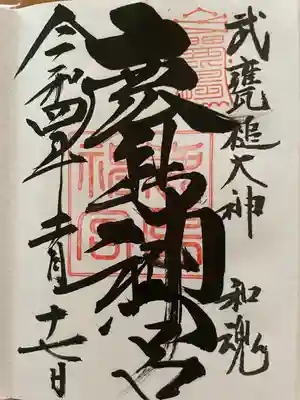 武甕槌大神 和魂
鹿島神宮
令和四年 月十七日